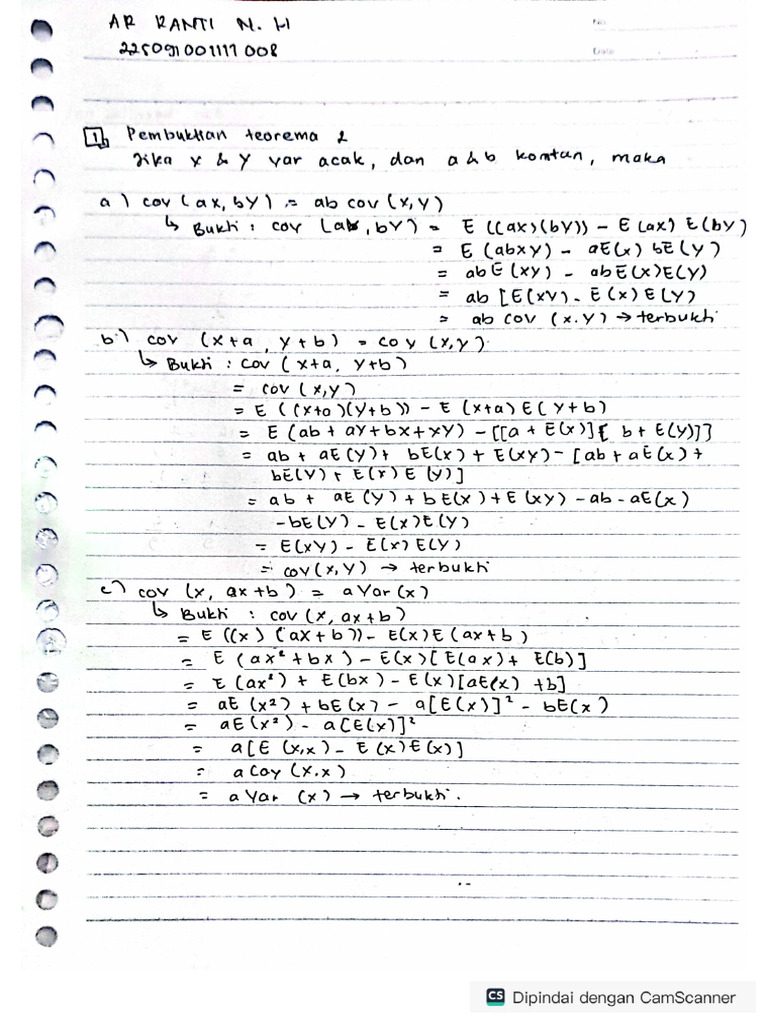 AR RANTI N. H
No.
225091001111008
Date
1 Pembuktian teorema 2
Jika x & y var acak, dan a & b kontan, maka
a) cov (ax, by) = ab cov (x,y)
↳ Bukti : cov (ax, by) = E ((ax)(by)) - E (ax) E(by)
= E (abxy) - aE(x) bE(y)
= abE (xy) - abE(x)E(y)
= ab [E(xy) - E(x) E(y)
= ab cov (x.y) → terbukti
b.) cov (x+a, y+b) = cov (x,y)
↳ Bukti : cov (x+a, y+b)
= cov (x,y)
= E ((x+a)(y+b)) - E (x+a) E(y+b)
= E (ab + ay + bx + xy) - [[a + E(x)][ b + E(y)]]
= ab + aE(y) + bE(x) + E(xy) - [ab + aE(x) +
bE(y) + E(x) E(y)]
= ab + aE (y) + bE(x) + E(xy) - ab - aE(x)
-bE(y) - E(x)E(y)
= E(xy) - E(x) E(y)
= cov(x,y) → terbukti
c) cov (x, ax+b) = a Var (x)
↳ Bukti : cov (x, ax+b)
= E ((x) (ax+b)) - E(x) E (ax+b)
= E (ax² + bx) - E(x) [E(ax) + E(b)]
= E (ax²) + E(bx) - E(x) [aE(x) + b]
= aE (x²) + bE(x) - a[E(x)]² - bE(x)
= aE(x²) - a[E(x)]²
= a[E (x,x) - E(x) E(x)]
= a Cov (x.x)
= a Var (x) → terbukti.
CS Dipindai dengan CamScanner